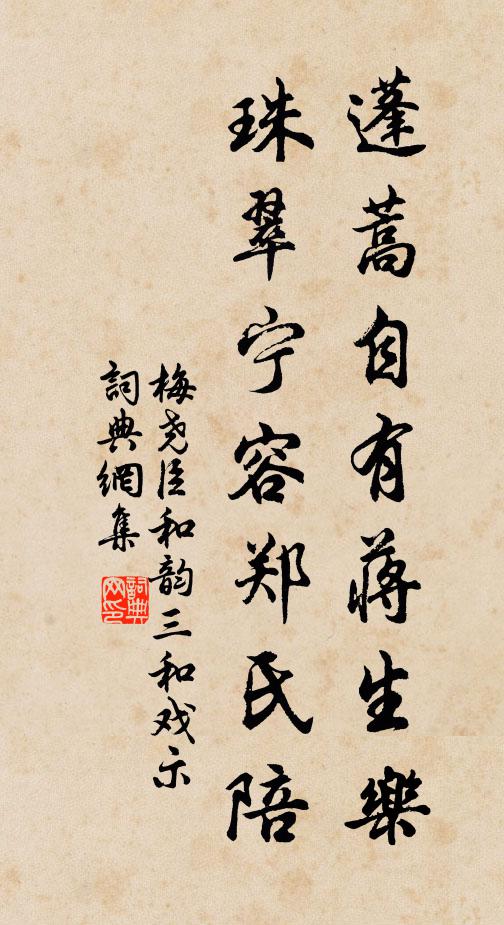 蓬蒿自有蒋生樂
珠翠宁容郑氏陪
梅尧臣和韵三和戏示
詞典網集
詞典網印